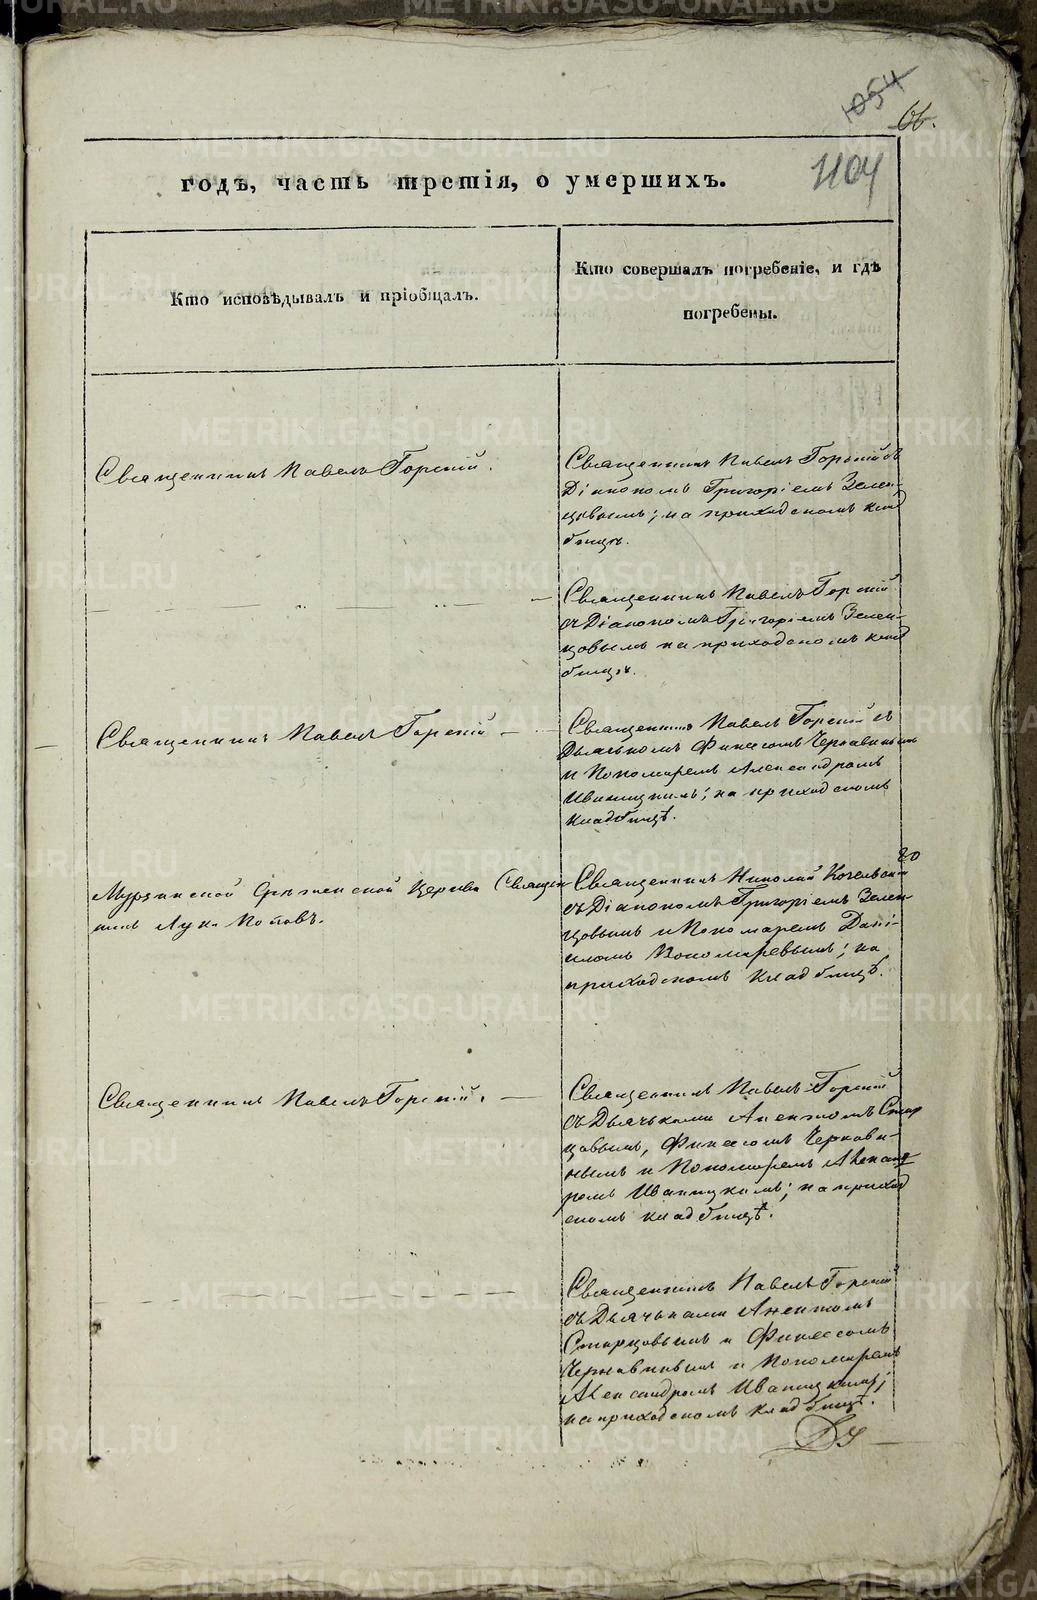 1054
66.
1104
годъ, часть третія, о умершихъ.
Кто исповѣдывалъ и пріобщалъ.
Кто совершалъ погребеніе, и гдѣ
погребены.
Священникъ Павелъ Горскій.
Священникъ Павелъ Горскій съ
Діакономъ Григоріемъ Зелен-
цовымъ; на приходскомъ клад
бищѣ.
Священникъ Павелъ Горскій
съ Діакономъ Григоріемъ Зелен-
цовымъ на приходскомъ клад
бищѣ.
Священникъ Павелъ Горскій
Священникъ Павелъ Горскій съ
Дьячькомъ Финесомъ Чернавинымъ
и Пономаремъ Александромъ
Иваницкимъ; на приходскомъ
кладбищѣ.
Мурзинской Срѣтенской Церкви Священ
никъ Лука Поповъ.
Священникъ Николай
съ Діакономъ Григоріемъ Зелен-
цовымъ и Пономаремъ Дані-
иломъ Пономаревымъ; на
приходскомъ кладбищѣ.
Священникъ Павелъ Горскій.
Священникъ Павелъ Горскій
съ Дьячьками Стар
цовымъ, Финесомъ Чернави-
нымъ и Пономаремъ Александ
ромъ Иваницкимъ; на приход
скомъ кладбищѣ.
Священникъ Павелъ Горскій
съ Дьячьками
Старцовымъ и Финесомъ
Чернавинымъ и Пономаремъ
Александромъ Иваницкимъ;
на приходскомъ кладбищѣ.
METRIKI.GASO-URAL.RU